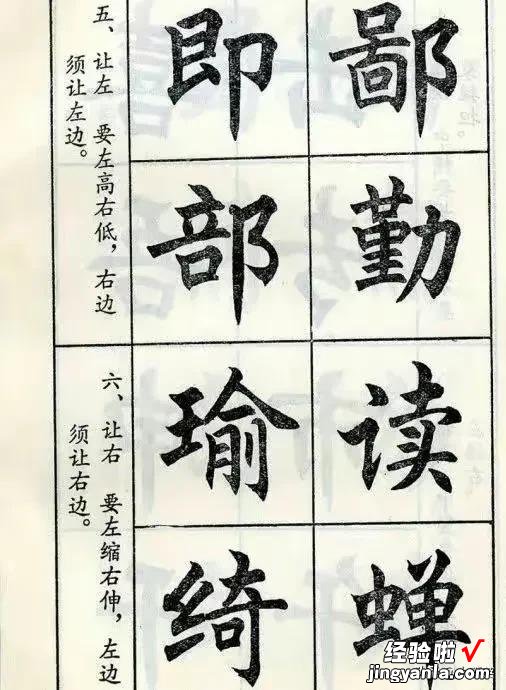 五、让左 要左高右低，右边
须让左边。
即 鄙
部 勤
六、让右 要左缩右伸，左边
须让右边。
瑜 读
绮 蝉
经验啦√
jingyanla.com